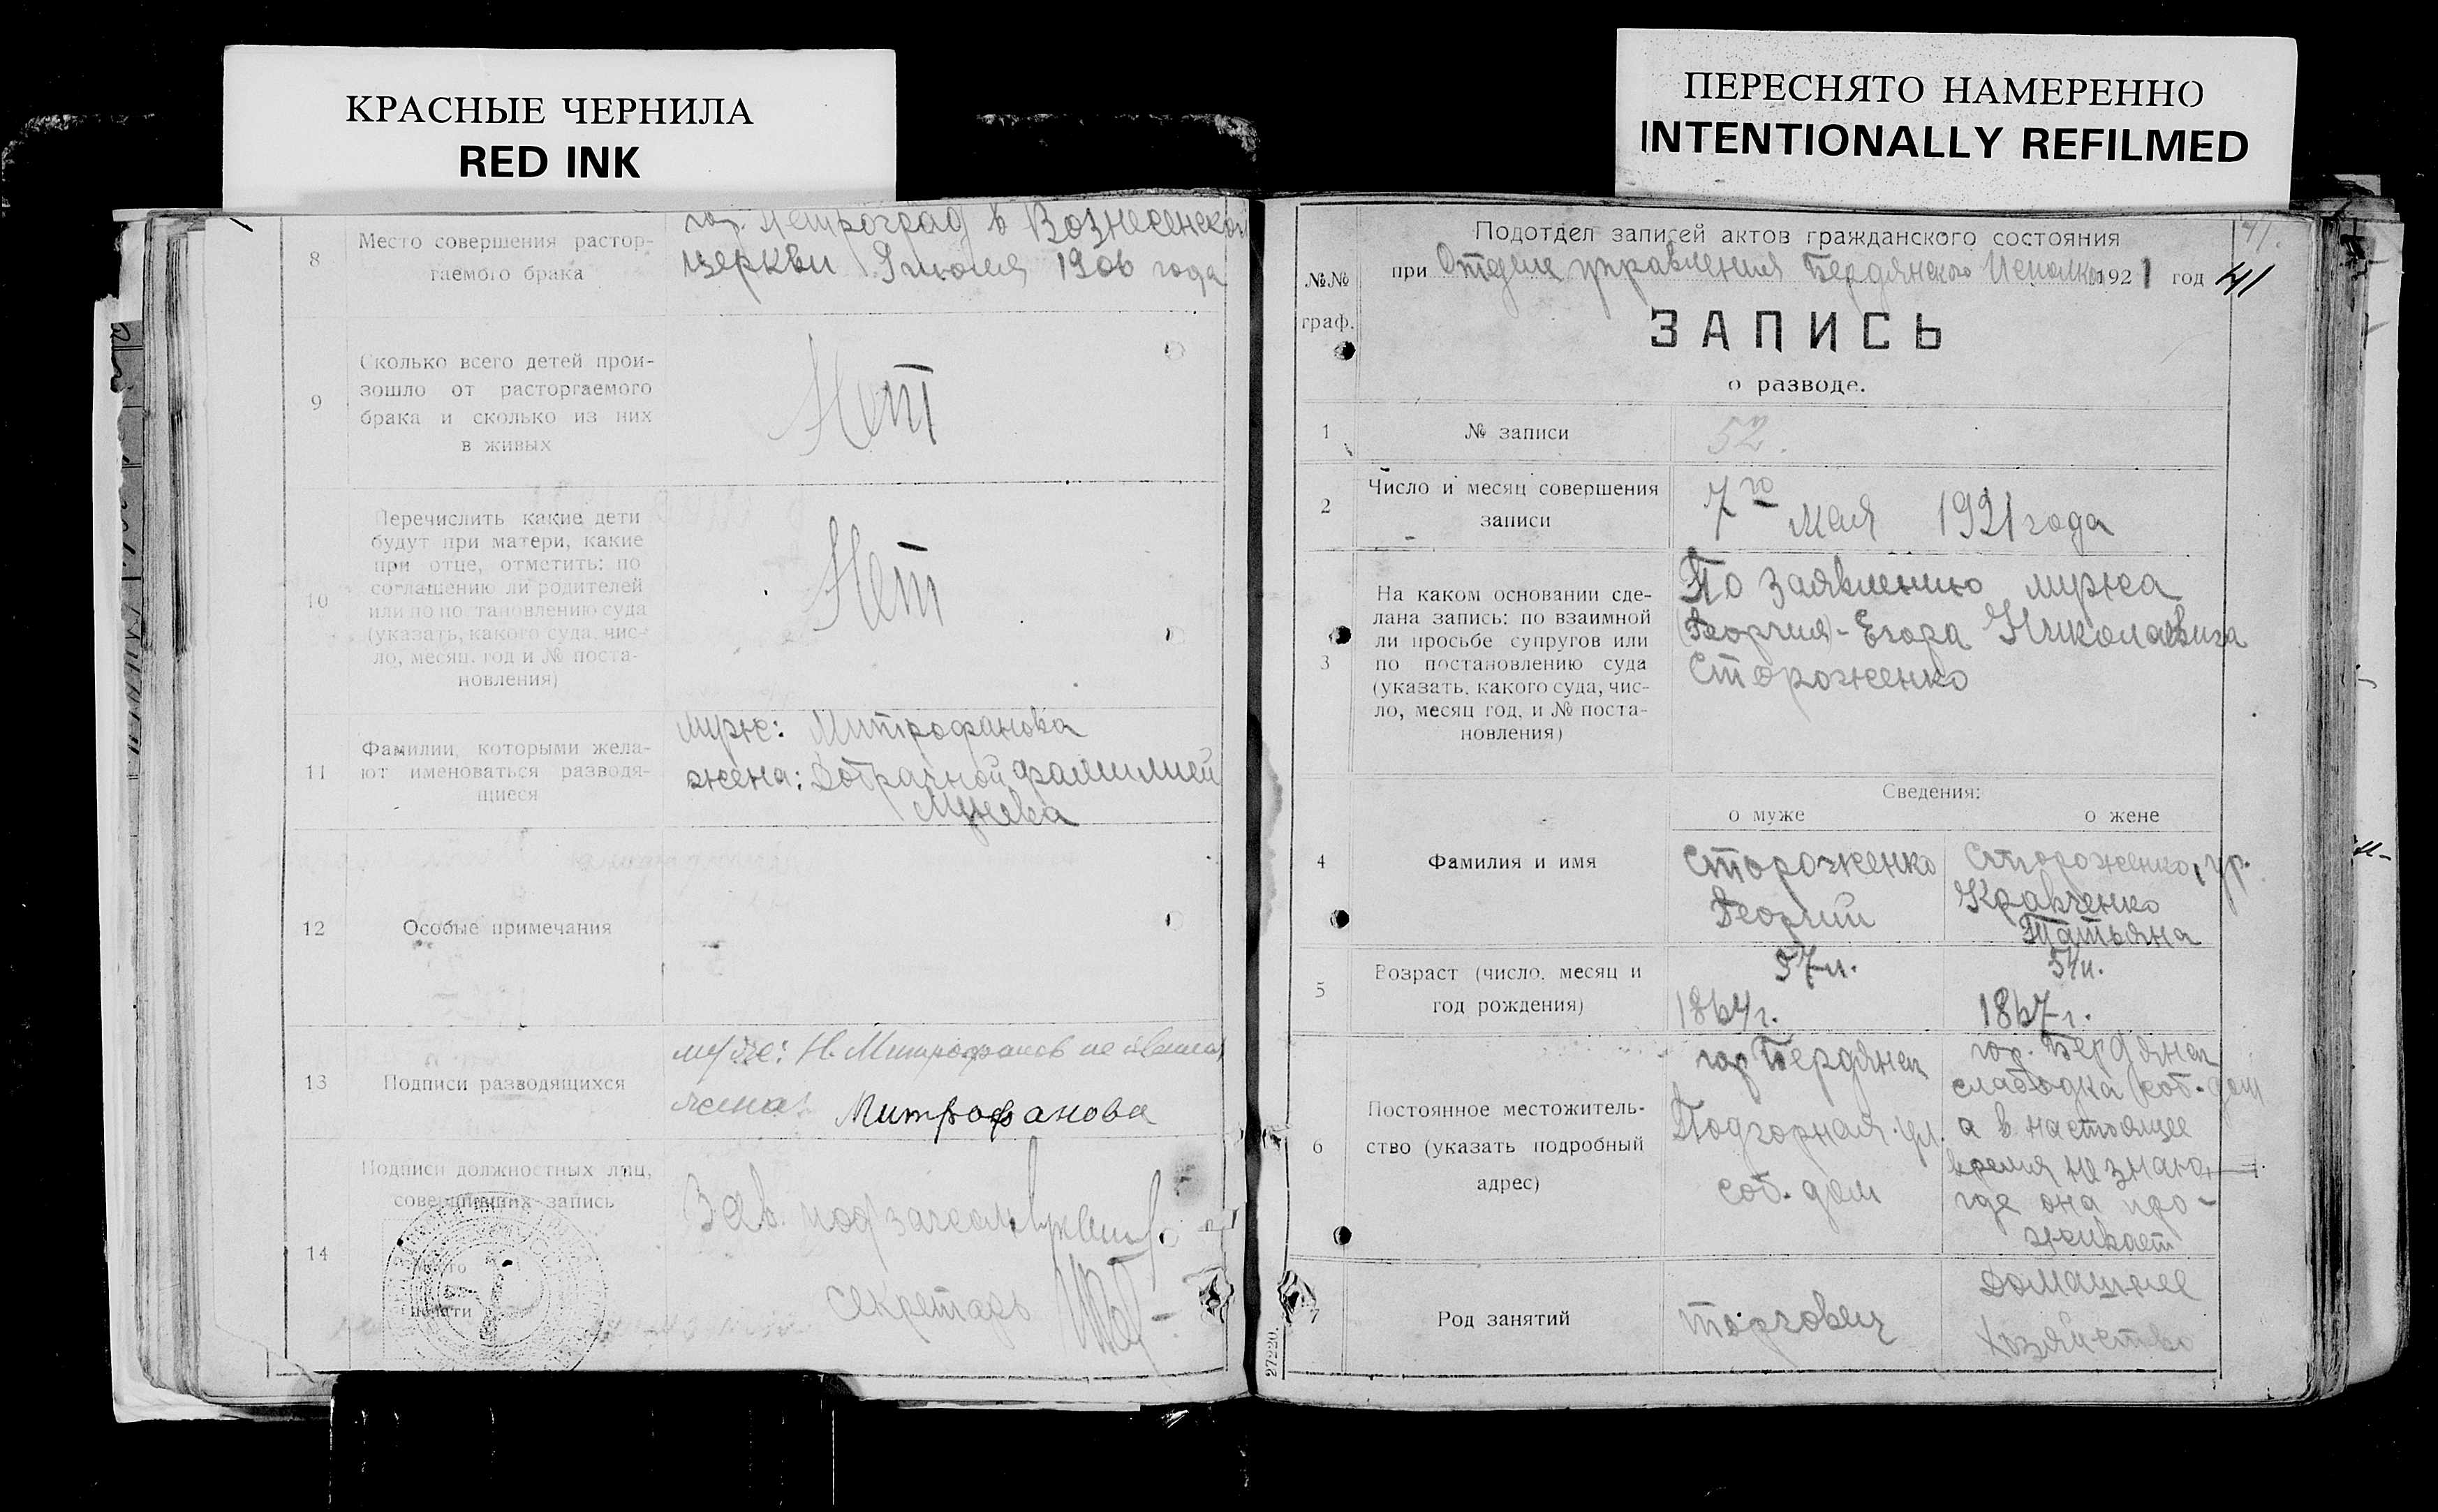 КРАСНЫЕ ЧЕРНИЛА
RED INK
8
Место совершения растор-
гаемого брака
гор. Петроград в Вознесенской
церкви 9 июня 1906 года
9
Сколько всего детей прои-
зошло от расторгаемого
брака и сколько из них
в живых
Нет
10
Перечислить какие дети
будут при матери, какие
при отце, отметить: по
соглашению ли родителей
или по постановлению суда
(указать, какого суда, чис-
ло, месяц, год и № поста-
новления)
Нет
11
Фамилии, которыми жела-
ют именоваться разводя-
щиеся
муж: Митрофанова
жена: Добрачной фамилией
12
Особые примечания
13
Подписи разводящихся
муж: Н. Митрофанов не
жена: Митрофанова
14
Подписи должностных лиц,
совершивших запись
Место
печати
Зав.
Секретарь
ПЕРЕСНЯТО НАМЕРЕННО
INTENTIONALLY REFILMED
41.
Подотдел записей актов гражданского состояния
при Отделе управления Бердянского Исполкома 1921 год
41
№№
граф.
ЗАПИСЬ
о разводе.
1
№ записи
52.
2
Число и месяц совершения
записи
7го мая 1921 года
3
На каком основании сде-
лана запись: по взаимной
ли просьбе супругов или
по постановлению суда
(указать, какого суда, чис-
ло, месяц год, и № поста-
новления)
По заявлению мужа
(Георгия)-Егора Николаевича
Стороженко
Сведения:
о муже
о жене
4
Фамилия и имя
Стороженко
Георгий
Стороженко, ур.
Кравченко
Татьяна
5
Возраст (число, месяц и
год рождения)
57 л.
1864 г.
54 л.
1867 г.
6
Постоянное местожитель-
ство (указать подробный
адрес)
гор Бердянск
Подгорная ул.
соб. дом
гор. Бердянск
слабодка соб. дом
а в настоящее
время не знаю,
где она про-
живает
7
Род занятий
торговец
Домашнее
хозяйство
27220